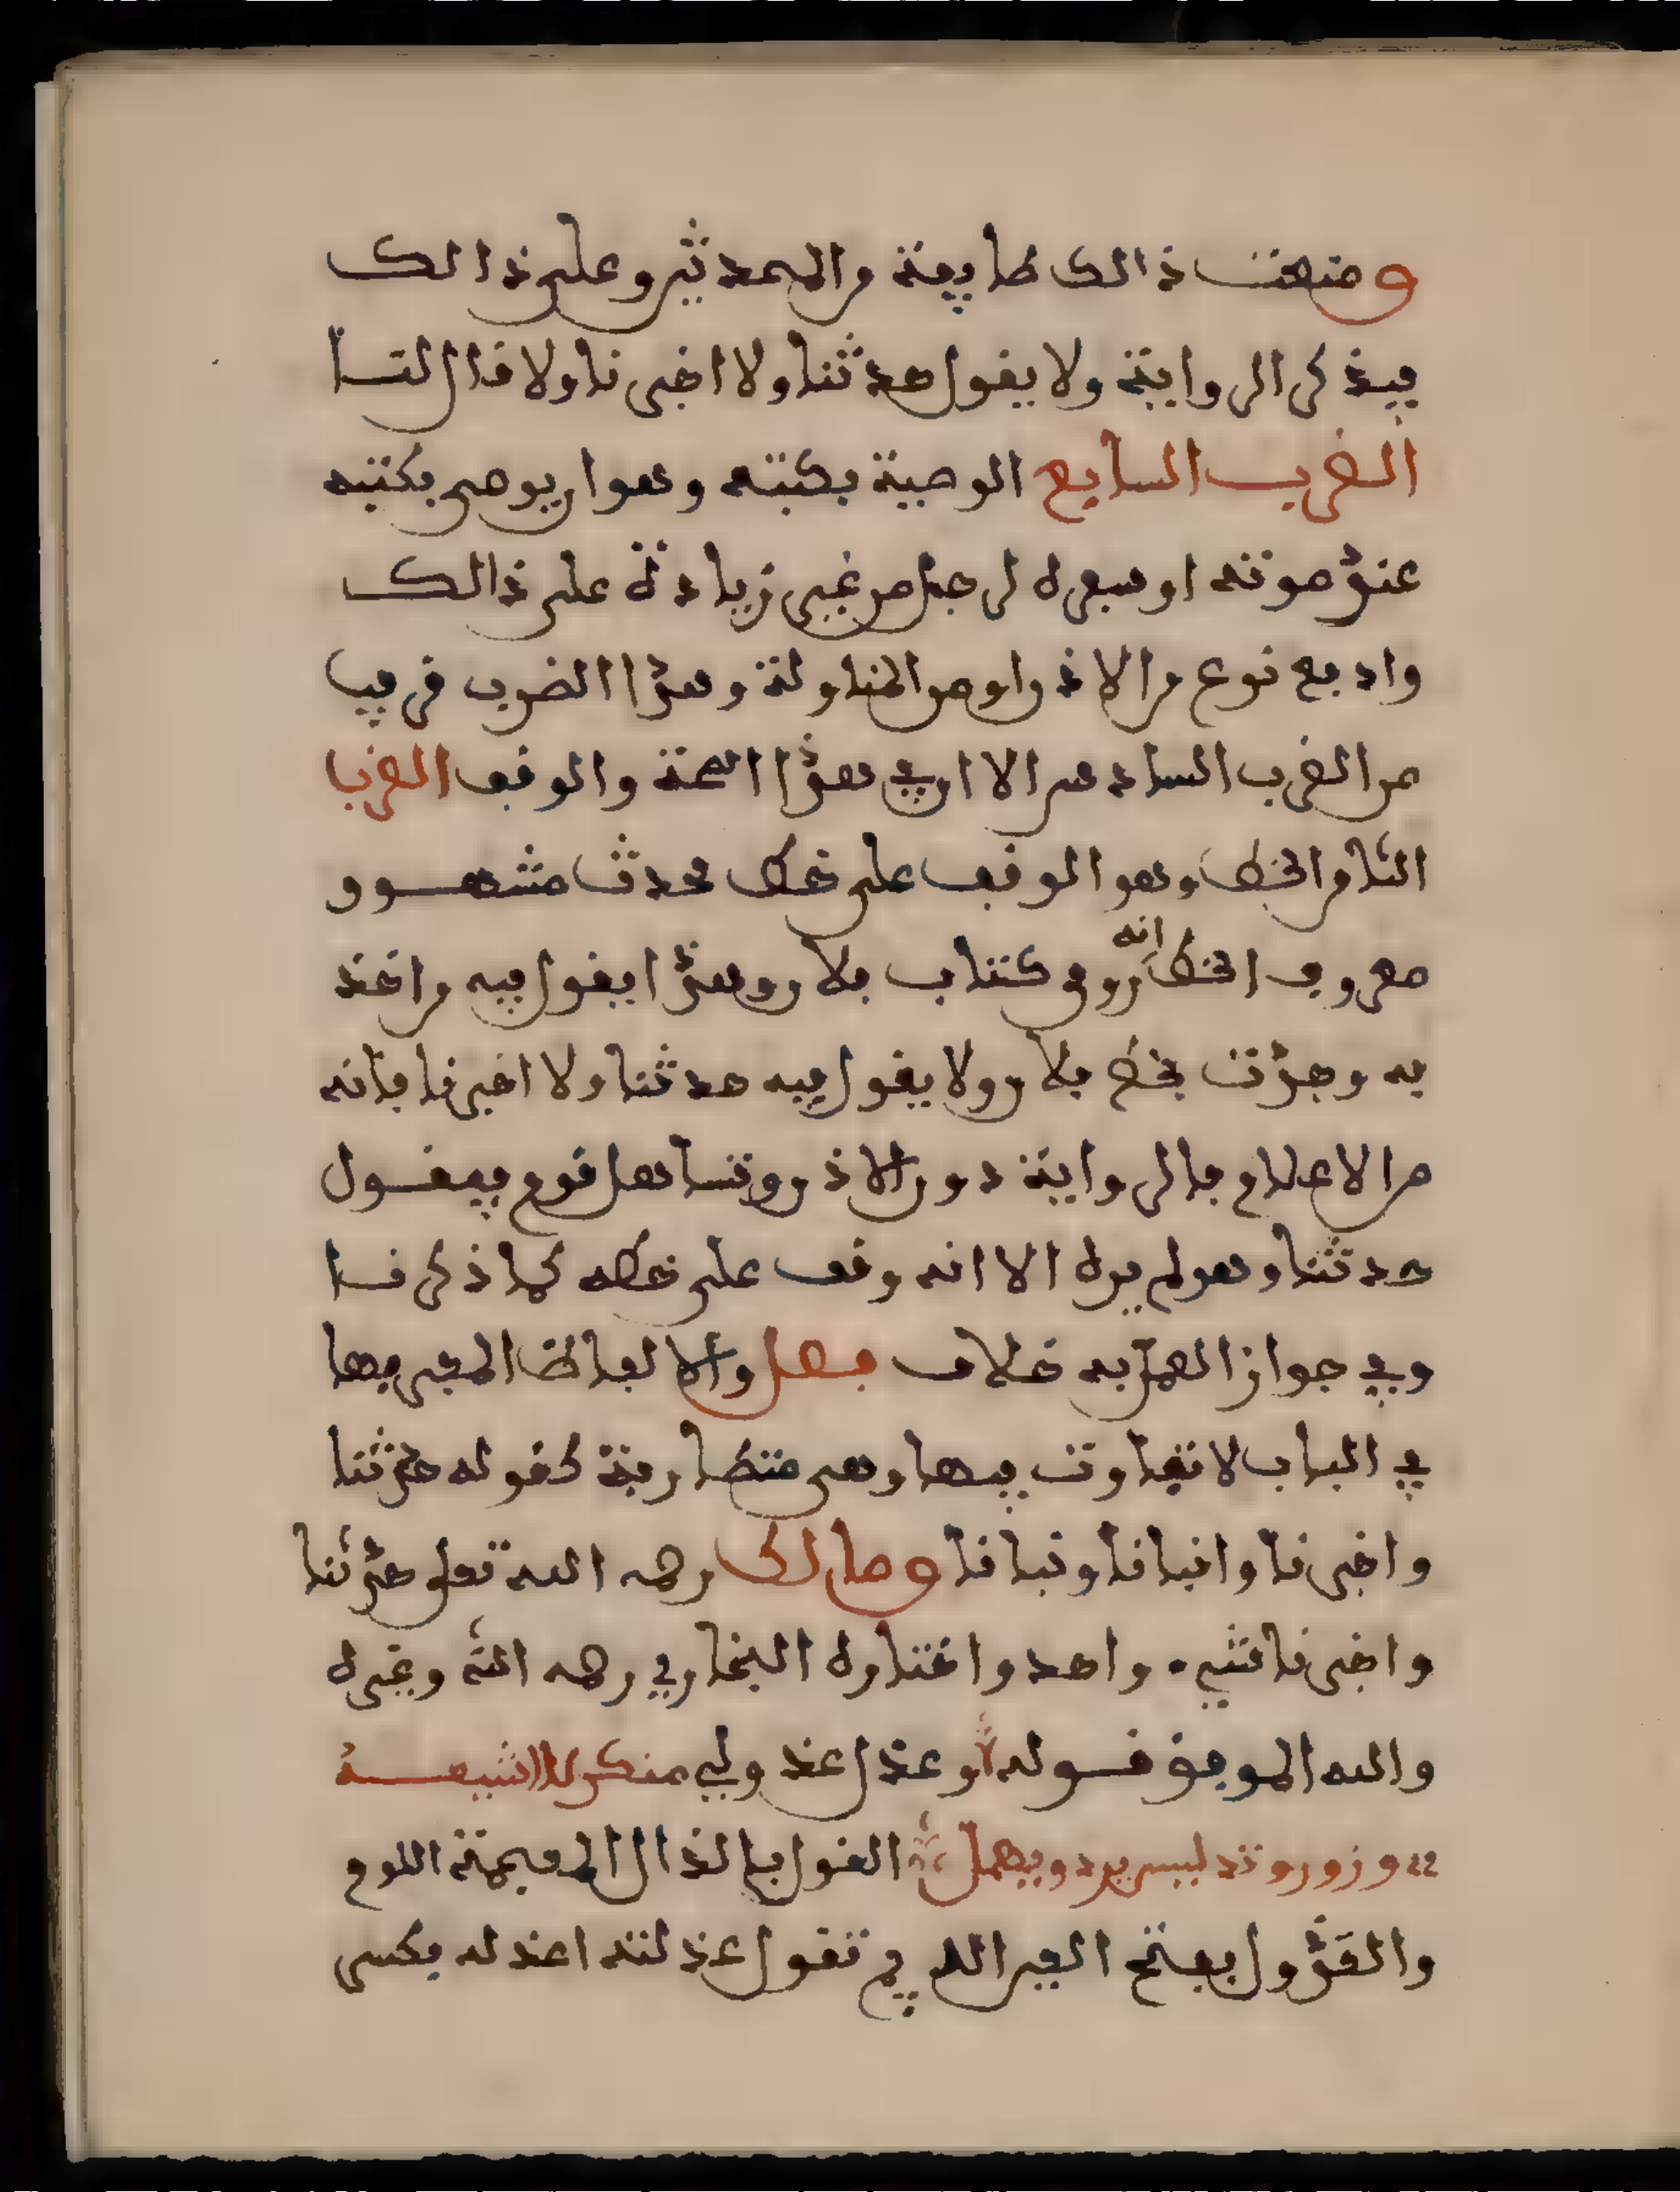 ومنعت ذالك طايفة من المحدثين وعلى ذالك
فيذكر الرواية ولا يقول حدثنا ولا اخبرنا ولا قال لنـا
الضرب السابع الوصية بكتبه وهو ان يوصي بكتبه
عند موته او سفره لرجل من غير زيادة على ذالك
واد فيه نوع من الاذن او من المناولة وهذا الضرب قريب
من الضرب السادس الا ان في هذا الصحة والوقف الضرب
الثامن الخط وهو الوقف على خط محدث مشهـور
معروف الخط انه روى كتاب فلان وهذا يقول فيه من اخذ
به وجدت بخط فلان ولا يقول فيه حدثنا ولا اخبرنا فانه
من الاعلام بالرواية دون الاذن وتساهل قوم فيقـول
حدثنا وهو لم يره الا انه وقف على خطه كما ذكرنـا
وفي جواز العمل به خلاف فصل والالفاظ المعبر بها
في الباب لا تفاوت فيها وهي متقاربة كقوله حدثنا
واخبرنا وانبانا ونبانا ومالك رحمه الله تعلى حدثنا
واخبرنا شيء واحد واختاره البخاري رحمه الله وغيره
والله الموفق قـوله او عذل عذولي منكر لا اسيغـه
وزور وتدليس يرد ويهمل القول بالذال المعجمة اللوم
والعذول بفتح العين اللايم تقول عذلته اعذله بكسر